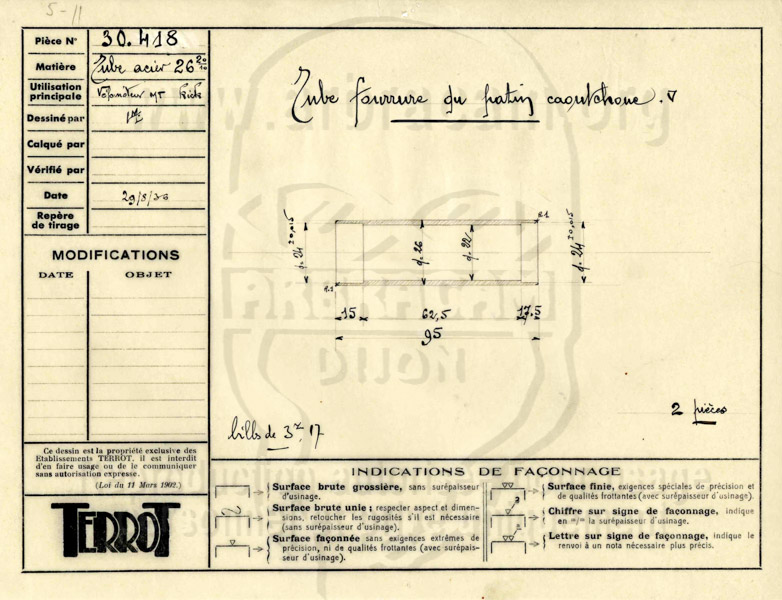 5-11
Pièce N° 30.418
Matière Tube acier 26 20/10
Utilisation principale Vélomoteur MT Kick
Dessiné par
Calqué par
Vérifié par
Date 29/8/36
Repère de tirage
MODIFICATIONS
DATE OBJET
Tube fourrure du patin caoutchouc. ▽
ø. 24 ±0,015
ø. 26
ø. 22
R.1
ø. 24 ±0,015
R.1
15 62,5 17.5
95
2 pièces
Ce dessin est la propriété exclusive des
Etablissements TERROT, il est interdit
d'en faire usage ou de le communiquer
sans autorisation expresse.
(Loi du 11 Mars 1902.)
TERROT
INDICATIONS DE FAÇONNAGE
Surface brute grossière, sans surépaisseur
d'usinage.
Surface brute unie ; respecter aspect et dimen-
sions, retoucher les rugosités s'il est nécessaire
(sans surépaisseur d'usinage).
Surface façonnée sans exigences extrêmes de
précision, ni de qualités frottantes (avec surépais-
seur d'usinage).
Surface finie, exigences spéciales de précision et
de qualités frottantes (avec surépaisseur d'usinage).
Chiffre sur signe de façonnage, indique
en =/= la surépaisseur d'usinage.
Lettre sur signe de façonnage, indique le
renvoi à un nota nécessaire plus précis.
www.arbracam.org
ARBRACAM
DIJON